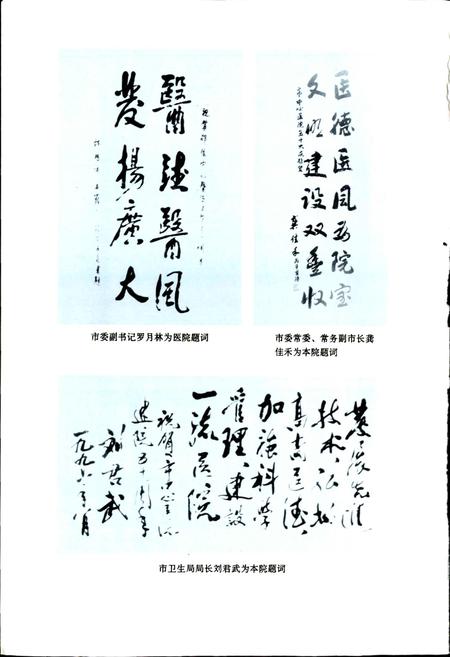 醫德醫風
發揚廣大
医德医风为院宝
文明建设双丰收
龚佳禾
市委副书记罗月林为医院题词
市委常委、常务副市长龚
佳禾为本院题词
技术、弘扬
高尚医德，
加强科学
管理、建设
一流医院
祝贺市中心医院
建院五十周年
刘君武
一九九六年八月
市卫生局局长刘君武为本院题词